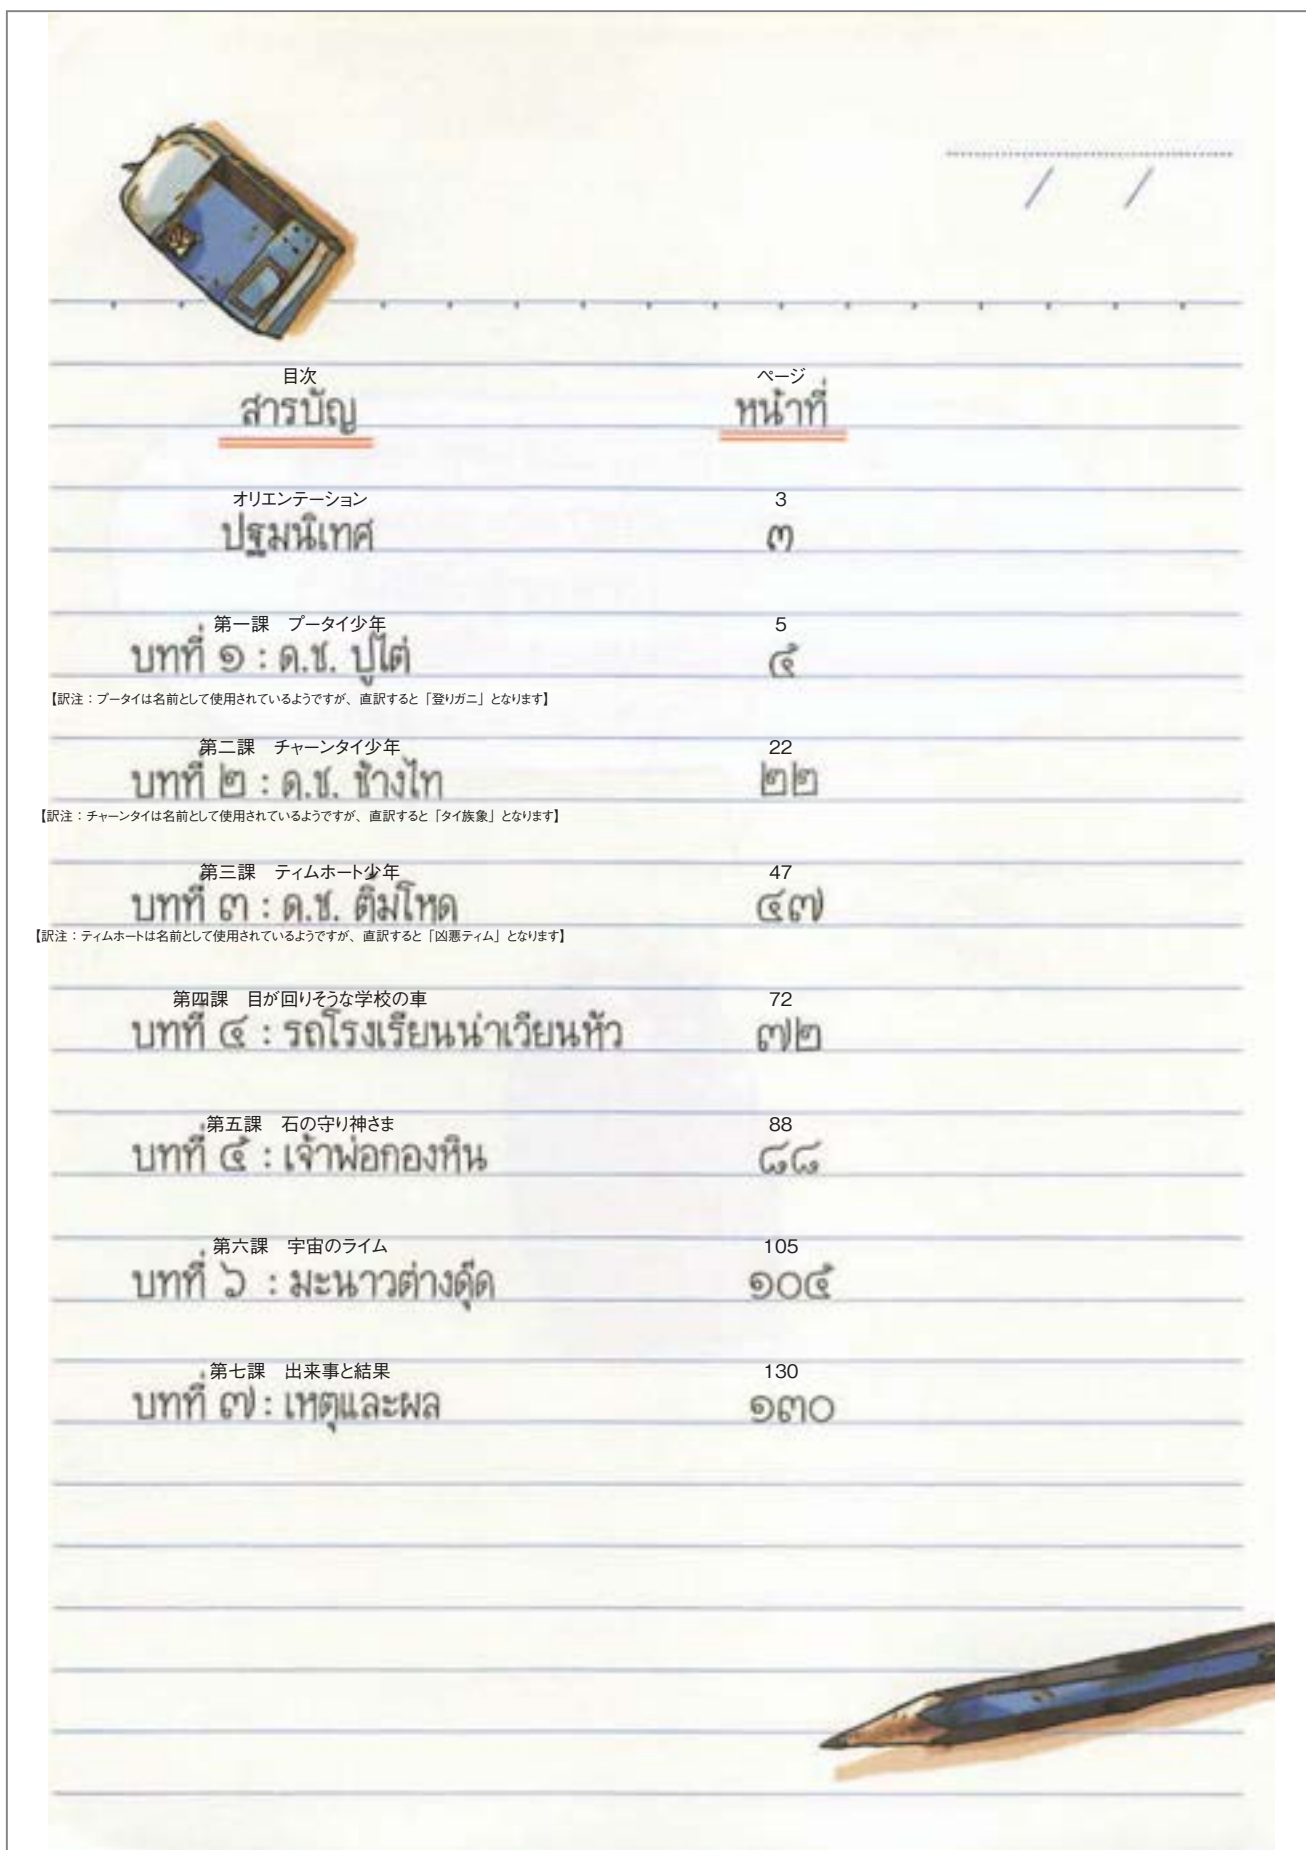 / /
目次 ページ
สารบัญ หน้าที่
オリエンテーション 3
ปฐมนิเทศ ๓
第一課 プータイ少年 5
บทที่ ๑ : ด.ช. ปูไต่ ๕
【訳注：プータイは名前として使用されているようですが、直訳すると「登りガニ」となります】
第二課 チャーンタイ少年 22
บทที่ ๒ : ด.ช. ช้างไท ๒๒
【訳注：チャーンタイは名前として使用されているようですが、直訳すると「タイ族象」となります】
第三課 ティムホート少年 47
บทที่ ๓ : ด.ช. ติ่มโหด ๔๗
【訳注：ティムホートは名前として使用されているようですが、直訳すると「凶悪ティム」となります】
第四課 目が回りそうな学校の車 72
บทที่ ๔ : รถโรงเรียนน่าเวียนหัว ๗๒
第五課 石の守り神さま 88
บทที่ ๕ : เจ้าพ่อกองหิน ๘๘
第六課 宇宙のライム 105
บทที่ ๖ : มะนาวต่างดุ๊ด ๑๐๕
第七課 出来事と結果 130
บทที่ ๗ : เหตุและผล ๑๓๐